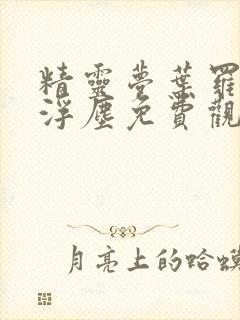 精靈夢葉羅
浮塵免費觀
月亮上的蛤蟆